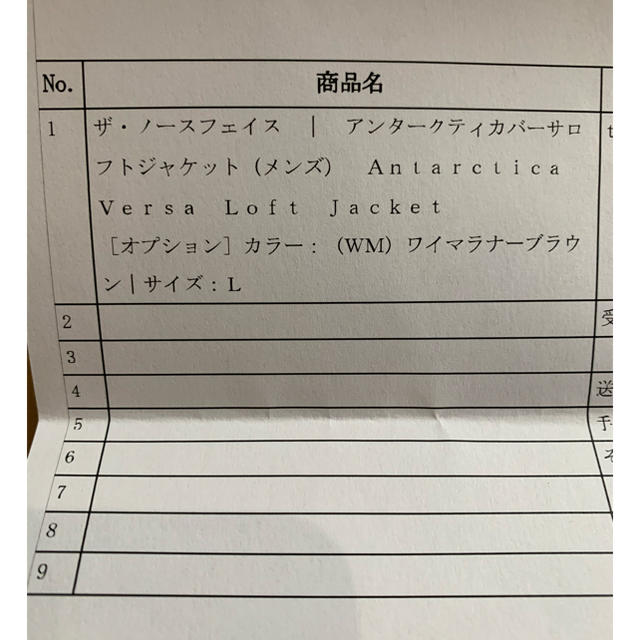 No. 商品名
1 ザ・ノースフェイス ｜ アンタークティカバーサロ
フトジャケット（メンズ） Ａｎｔａｒｃｔｉｃａ
Ｖｅｒｓａ Ｌｏｆｔ Ｊａｃｋｅｔ
［オプション］カラー：（WM）ワイマラナーブラウ
ン｜サイズ：L
2 受
3
4 送
5 手
6 そ
7
8
9